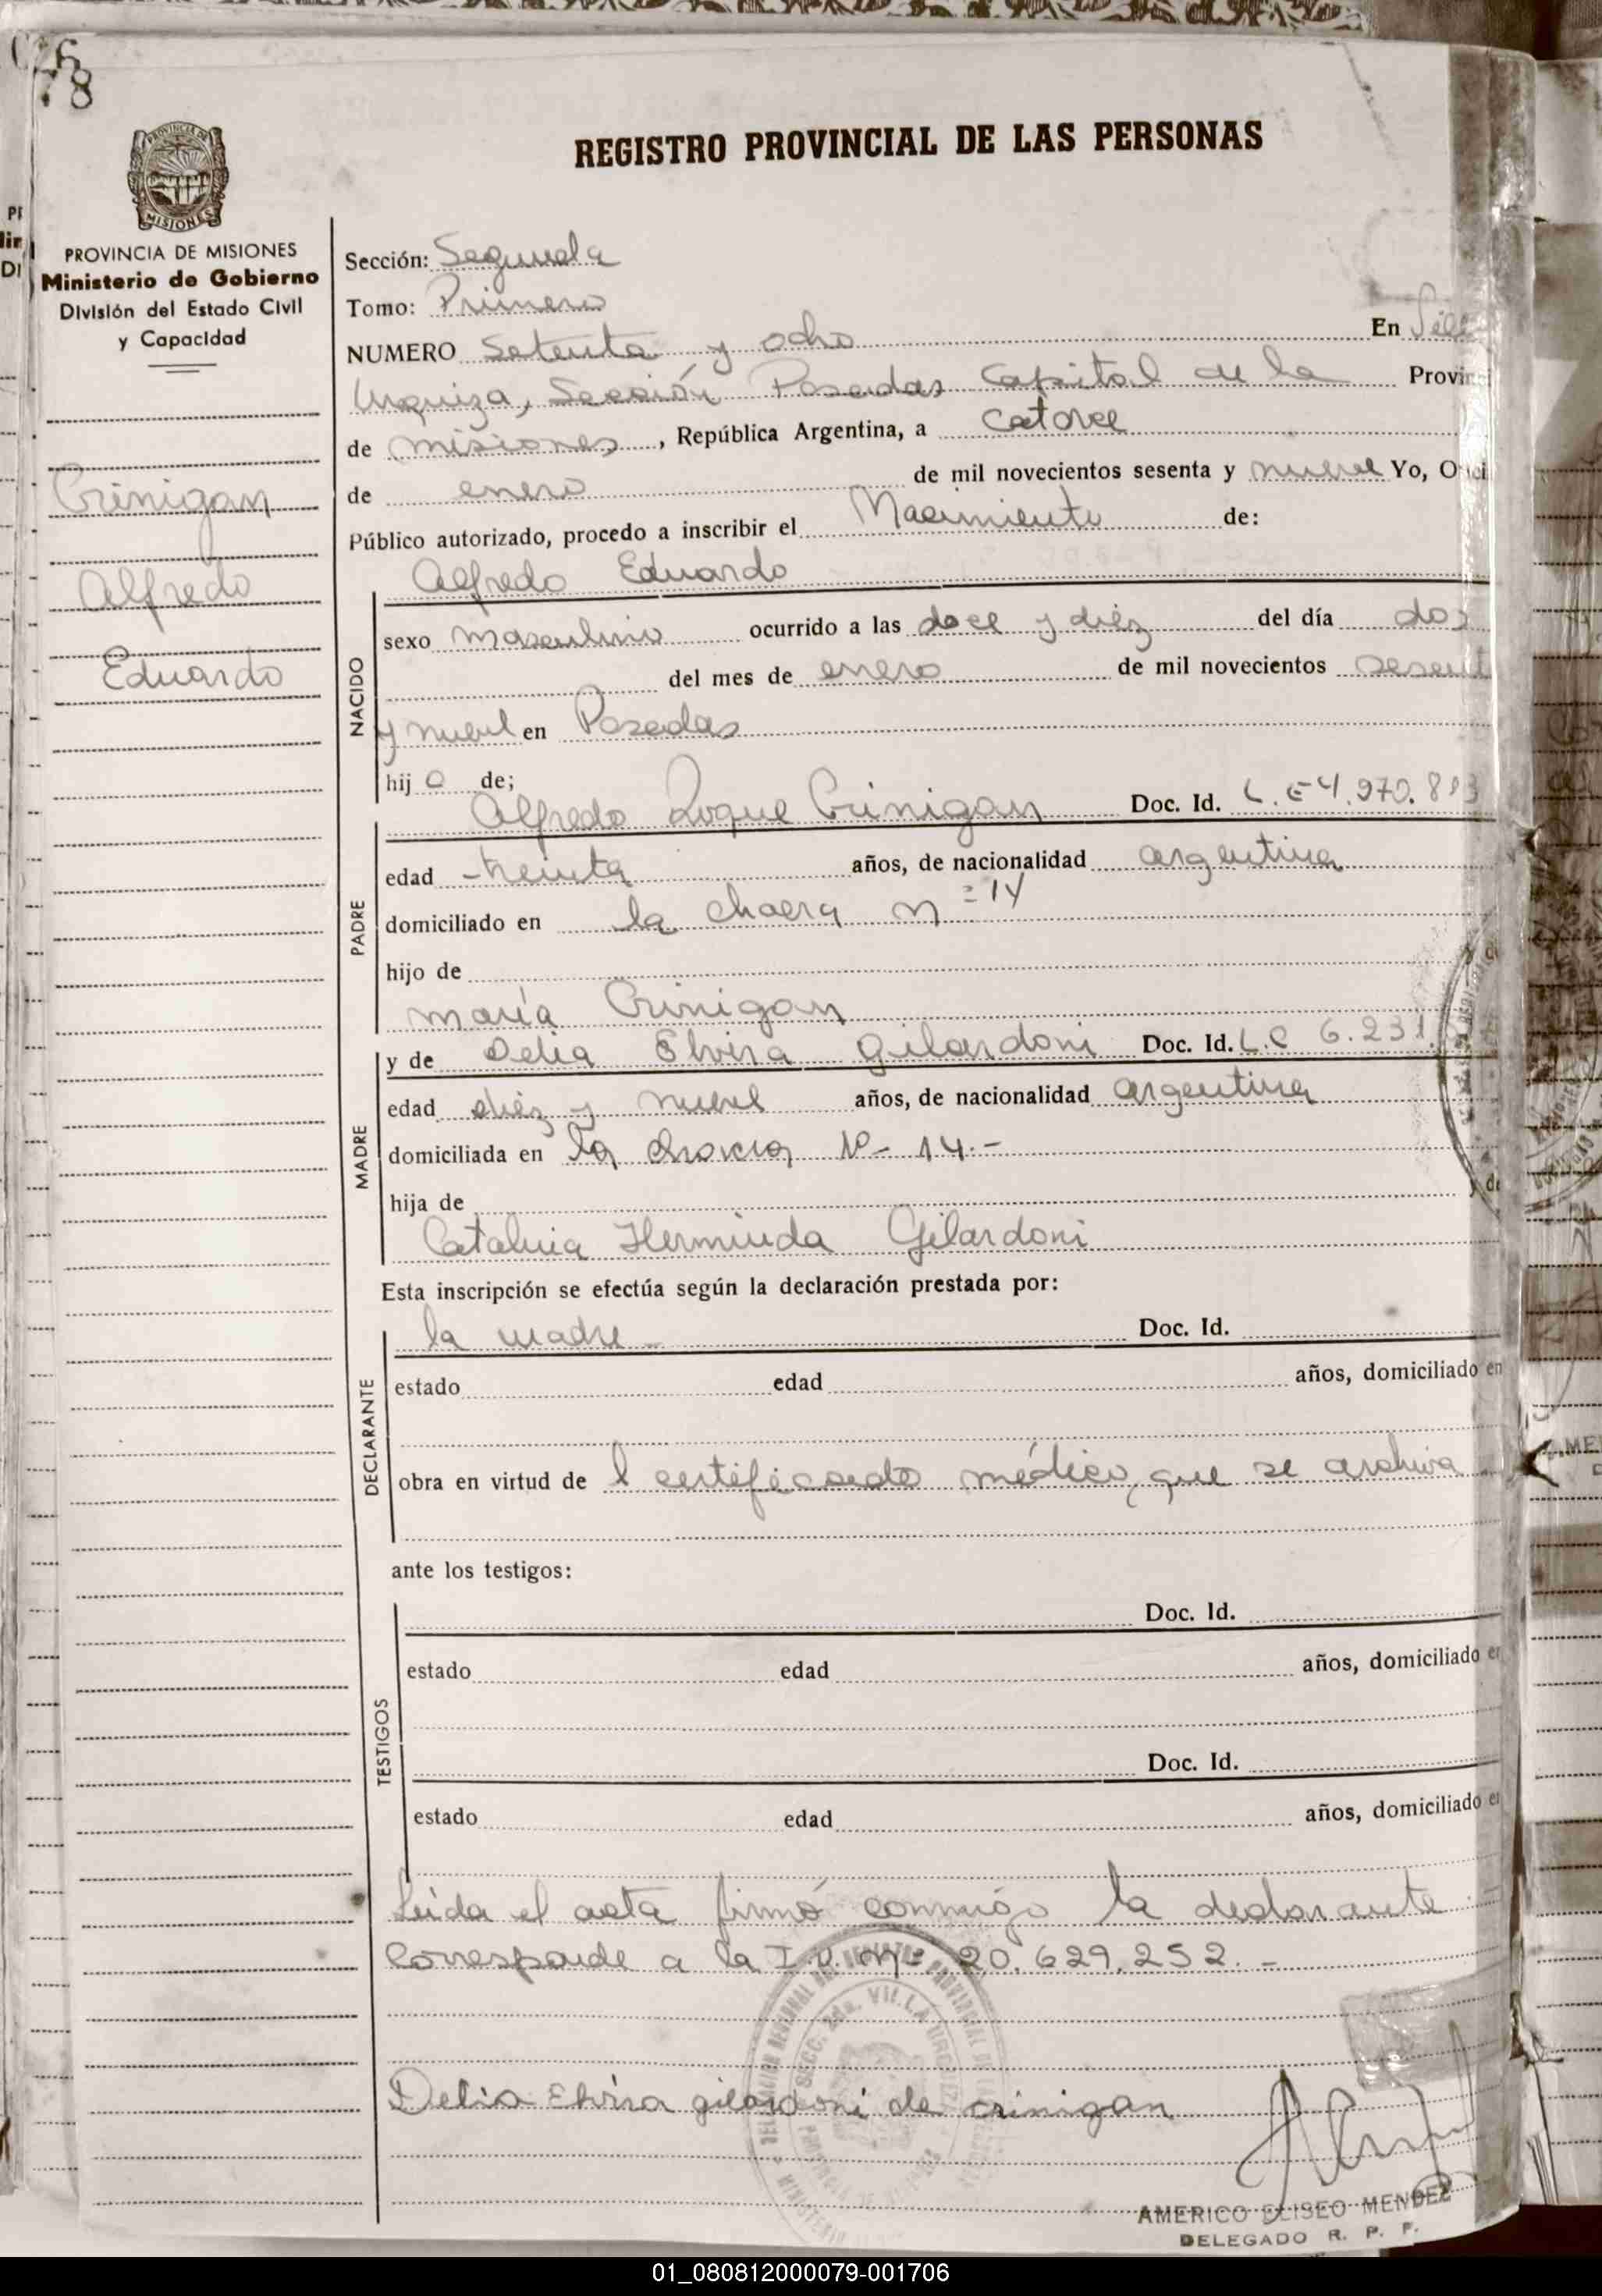 78
REGISTRO PROVINCIAL DE LAS PERSONAS
PROVINCIA DE MISIONES
Ministerio de Gobierno
División del Estado Civil
y Capacidad
Crinigan
Alfredo
Eduardo
Sección: Segunda
Tomo: Primero
NUMERO Setenta y ocho En
Urquiza, Sección Posadas Capital de la Provin
de misiones, República Argentina, a catorce
de enero de mil novecientos sesenta y nueve Yo, Ofici
Público autorizado, procedo a inscribir el Nacimiento de:
NACIDO
Alfredo Eduardo
sexo masculino ocurrido a las doce y diéz del día dos
del mes de enero de mil novecientos sesent
y nueve en Posadas
hijo de;
PADRE
Alfredo Roque Crinigan Doc. Id. L.E 4.970.813
edad treinta años, de nacionalidad argentina
domiciliado en la chacra nº 14
hijo de
maría Crinigan
MADRE
y de Delia Elvira Gilardoni Doc. Id. L.C 6.231.
edad diéz y nueve años, de nacionalidad argentina
domiciliada en la chacra Nº 14.-
hija de
Catalina Herminda Gilardoni
Esta inscripción se efectúa según la declaración prestada por:
DECLARANTE
la madre Doc. Id.
estado edad años, domiciliado en
obra en virtud de l certificado médico, que se archiva
ante los testigos:
TESTIGOS
Doc. Id.
estado edad años, domiciliado e
Doc. Id.
estado edad años, domiciliado e
Leída el acta firmó conmigo la declarante
Corresponde a la nº 20.629.252.-
Delia Elvira gilardoni de crinigan
AMERICO ELISEO MENDEZ
DELEGADO R. P. P.
01_080812000079-001706